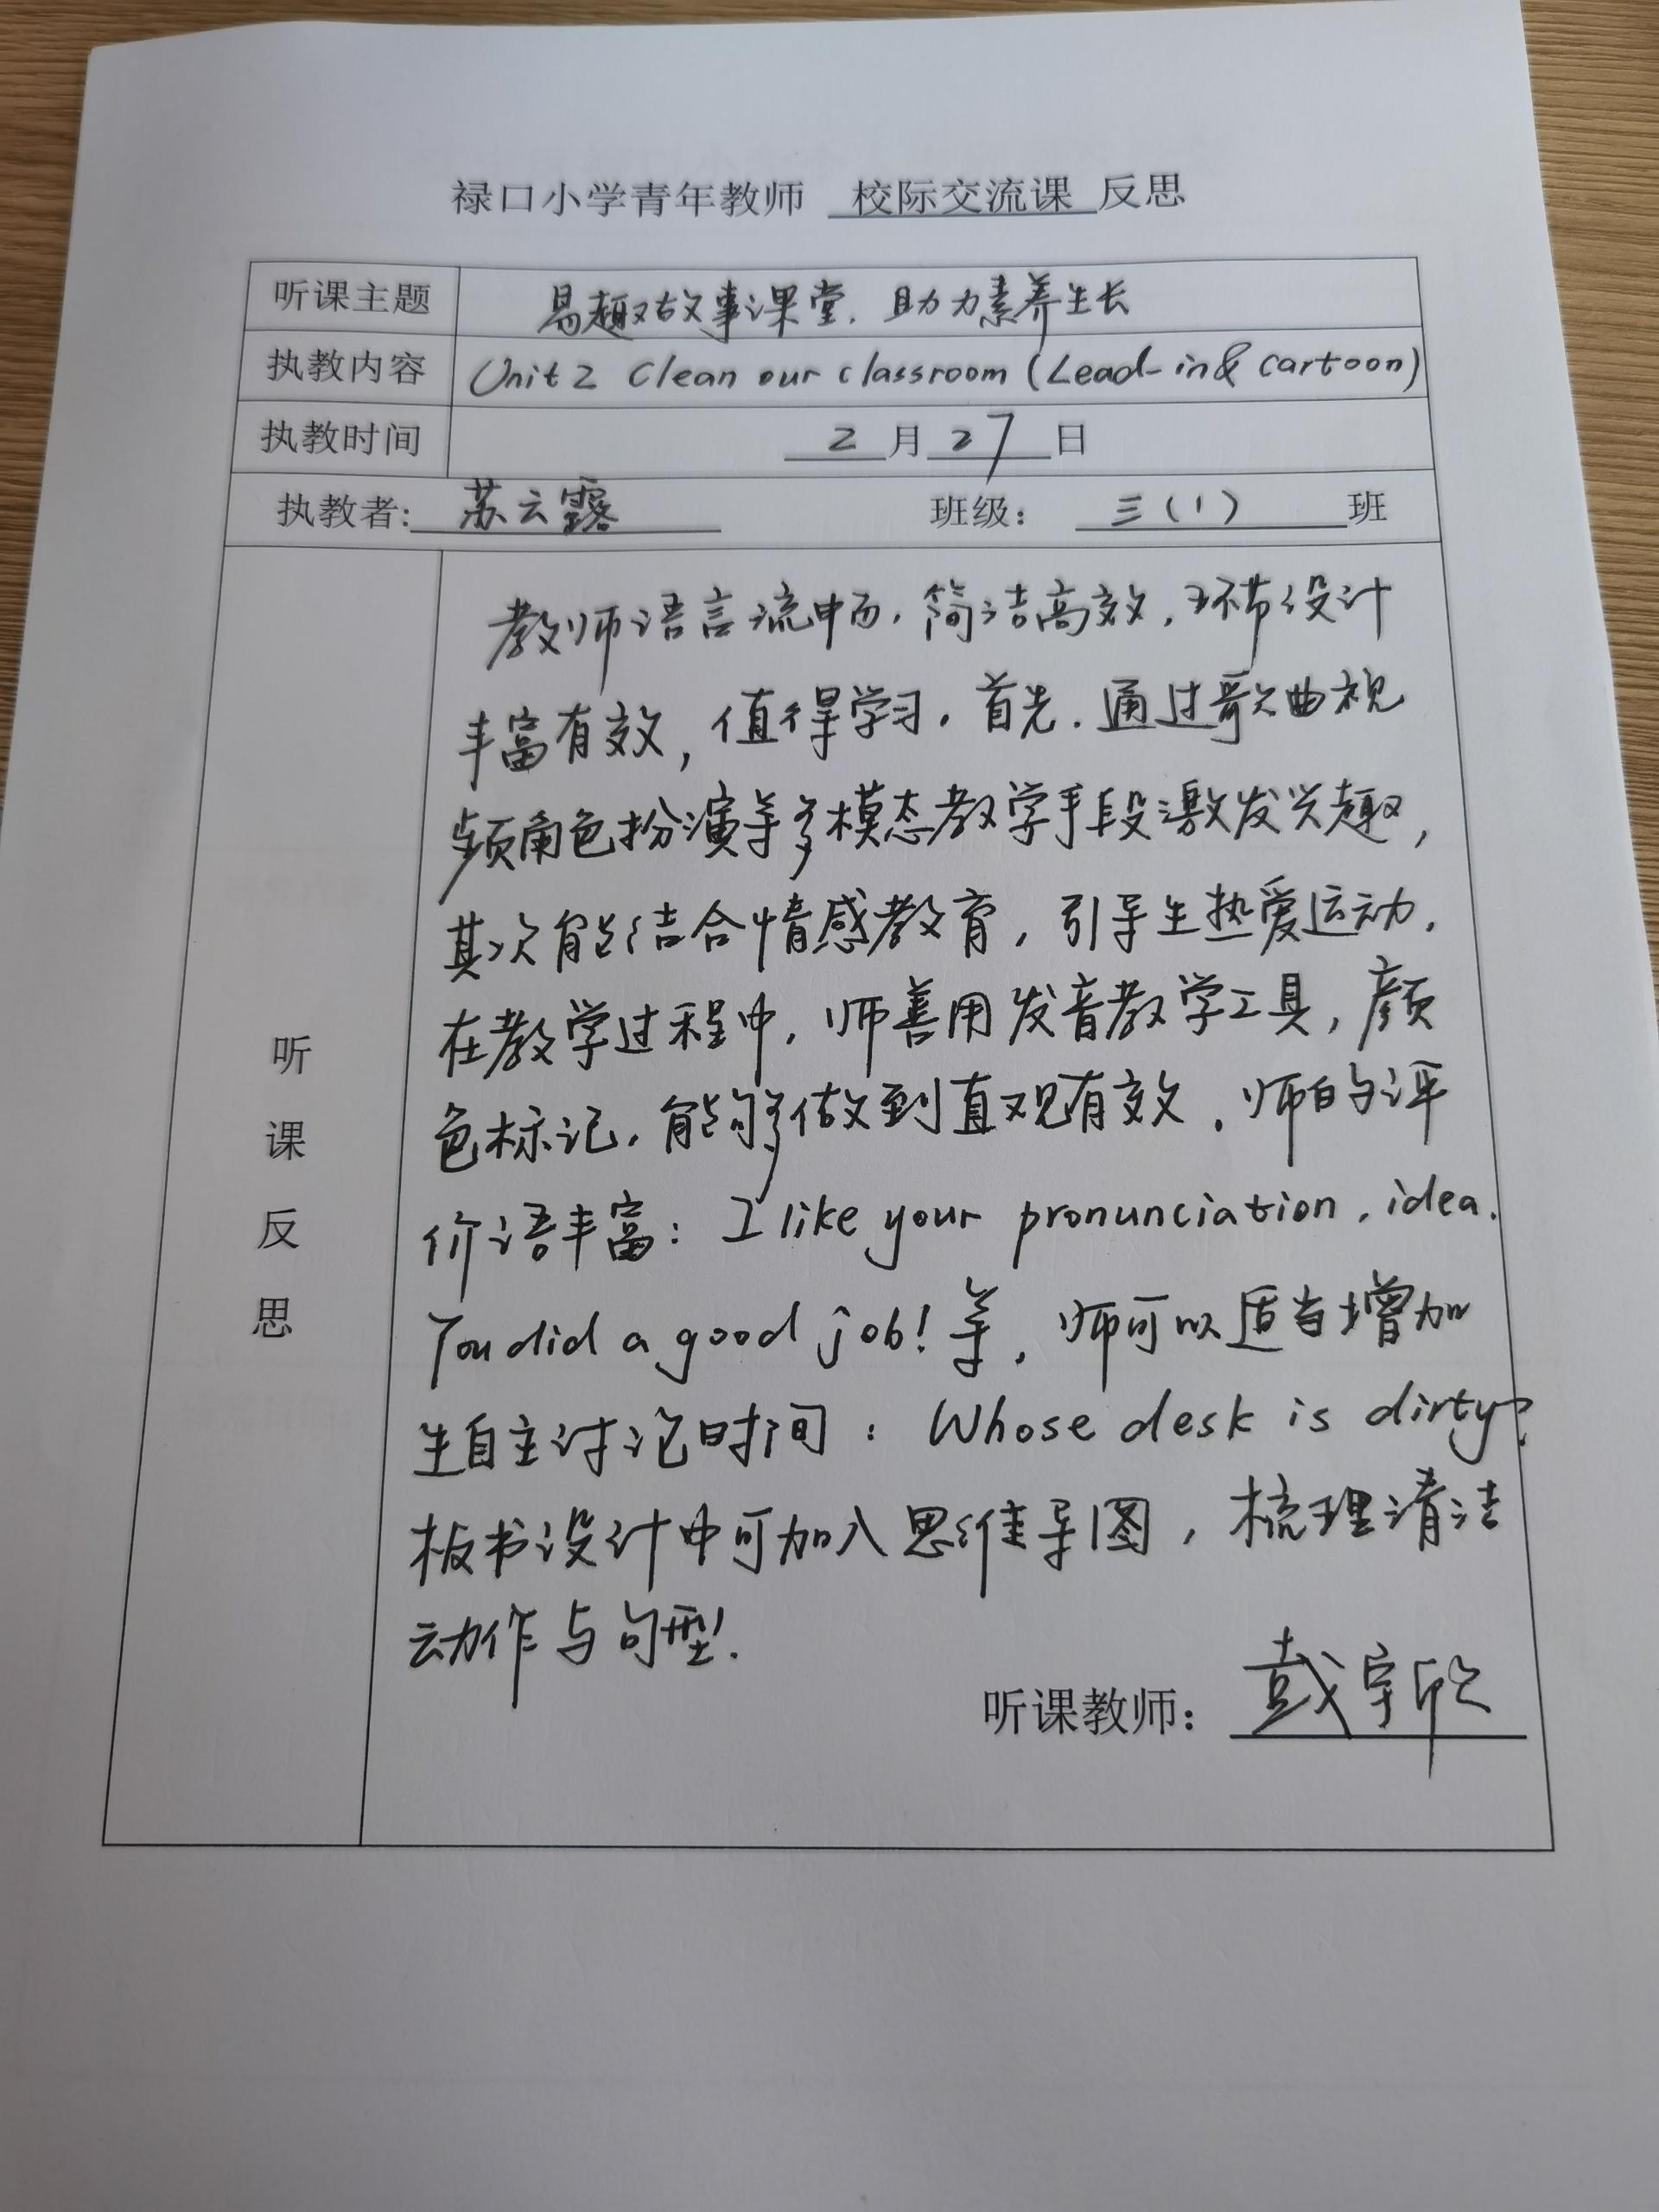 禄口小学青年教师 校际交流课 反思
听课主题 易趣故事课堂.助力素养生长
执教内容 Unit 2 Clean our classroom (Lead-in & cartoon)
执教时间 2月27日
执教者: 苏云露 班级: 三(1) 班
听课反思
教师语言流畅.简洁高效,环节设计
丰富有效,值得学习.首先.通过歌曲视
频角色扮演等多模态教学手段激发兴趣,
其次能结合情感教育,引导生热爱运动.
在教学过程中.师善用发音教学工具,颜
色标记.能够做到直观有效.师的评
价语丰富: I like your pronunciation, idea.
You did a good job!等.师可以适当增加
生自主讨论时间: Whose desk is dirty?
板书设计中可加入思维导图,梳理清洁
动作与句型.
听课教师: 彭宇欣